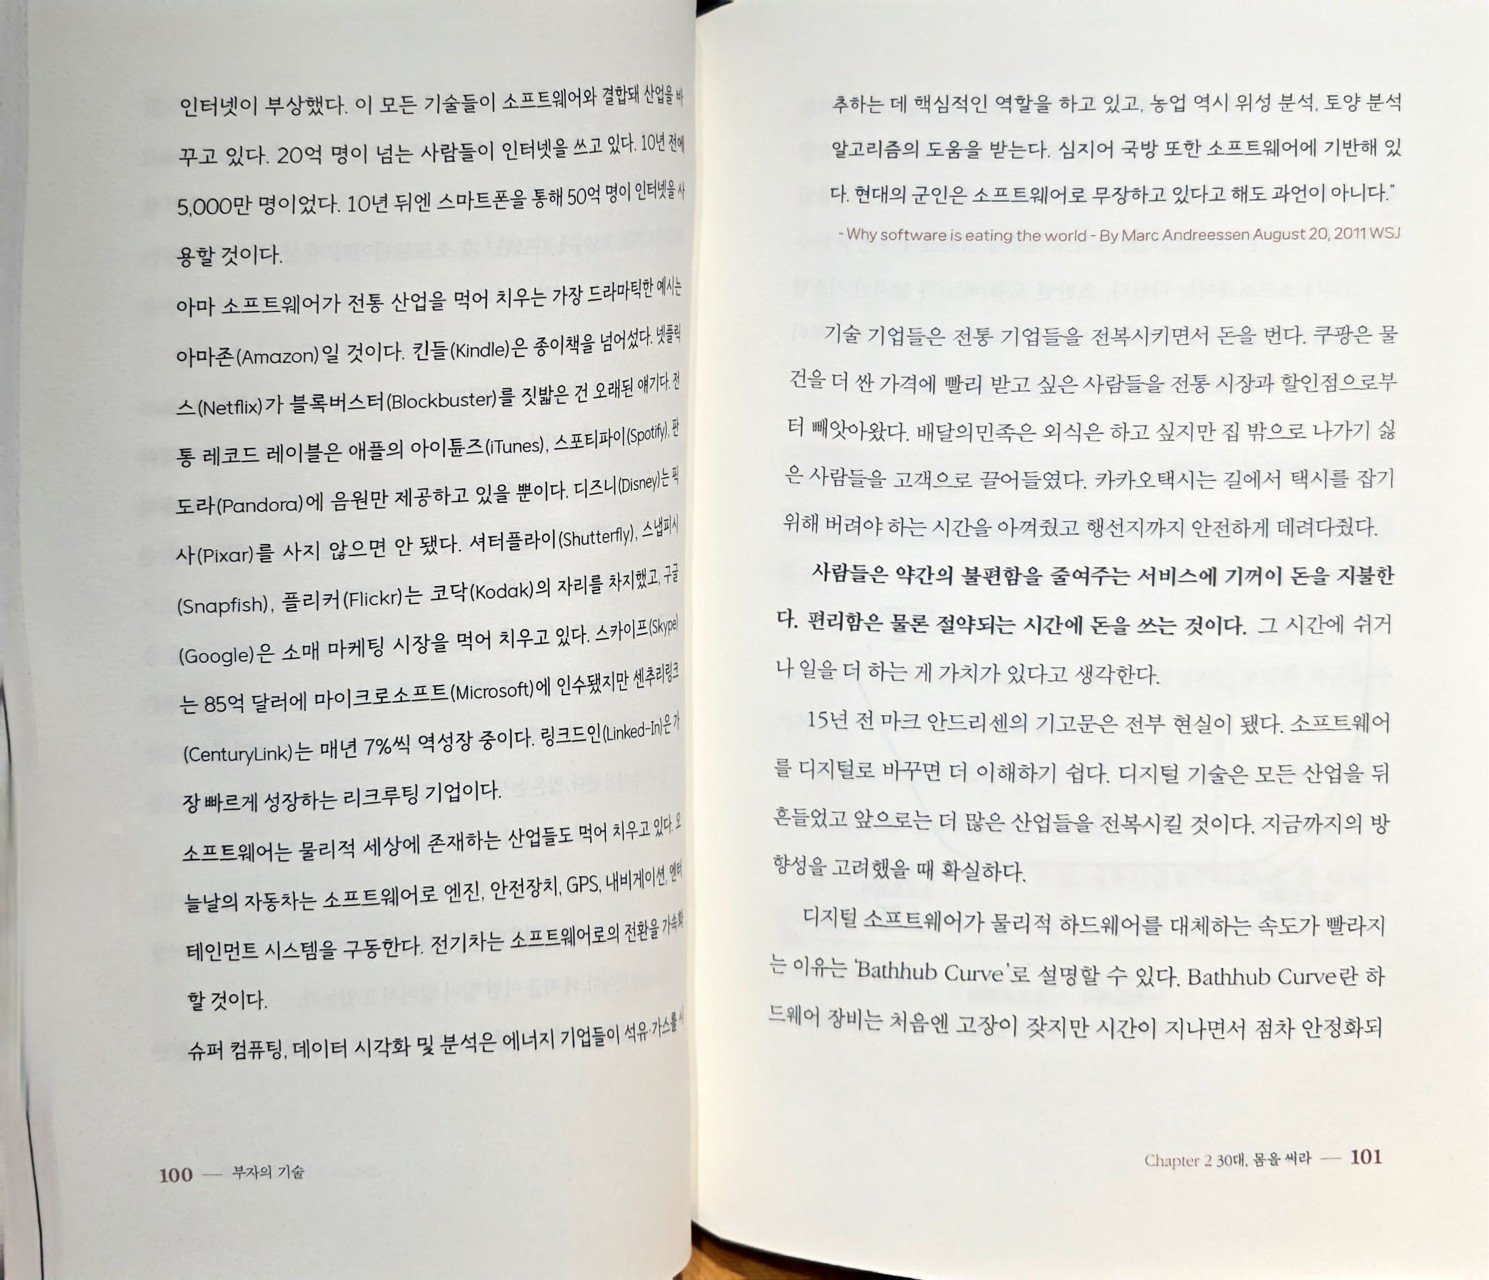 인터넷이 부상했다. 이 모든 기술들이 소프트웨어와 결합돼 산업을 바
꾸고 있다. 20억 명이 넘는 사람들이 인터넷을 쓰고 있다. 10년 전에
5,000만 명이었다. 10년 뒤엔 스마트폰을 통해 50억 명이 인터넷을 사
용할 것이다.
아마 소프트웨어가 전통 산업을 먹어 치우는 가장 드라마틱한 예시는
아마존(Amazon)일 것이다. 킨들(Kindle)은 종이책을 넘어섰다. 넷플릭
스(Netflix)가 블록버스터(Blockbuster)를 짓밟은 건 오래된 얘기다. 전
통 레코드 레이블은 애플의 아이튠즈(iTunes), 스포티파이(Spotify), 판
도라(Pandora)에 음원만 제공하고 있을 뿐이다. 디즈니(Disney)는 픽
사(Pixar)를 사지 않으면 안 됐다. 셔터플라이(Shutterfly), 스냅피시
(Snapfish), 플리커(Flickr)는 코닥(Kodak)의 자리를 차지했고, 구글
(Google)은 소매 마케팅 시장을 먹어 치우고 있다. 스카이프(Skype)
는 85억 달러에 마이크로소프트(Microsoft)에 인수됐지만 센추리링크
(CenturyLink)는 매년 7%씩 역성장 중이다. 링크드인(Linked-In)은 가
장 빠르게 성장하는 리크루팅 기업이다.
소프트웨어는 물리적 세상에 존재하는 산업들도 먹어 치우고 있다. 오
늘날의 자동차는 소프트웨어로 엔진, 안전장치, GPS, 내비게이션, 엔터
테인먼트 시스템을 구동한다. 전기차는 소프트웨어로의 전환을 가속화
할 것이다.
슈퍼 컴퓨팅, 데이터 시각화 및 분석은 에너지 기업들이 석유·가스를 시
100 — 부자의 기술
추하는 데 핵심적인 역할을 하고 있고, 농업 역시 위성 분석, 토양 분석
알고리즘의 도움을 받는다. 심지어 국방 또한 소프트웨어에 기반해 있
다. 현대의 군인은 소프트웨어로 무장하고 있다고 해도 과언이 아니다."
- Why software is eating the world - By Marc Andreessen August 20, 2011 WSJ
기술 기업들은 전통 기업들을 전복시키면서 돈을 번다. 쿠팡은 물
건을 더 싼 가격에 빨리 받고 싶은 사람들을 전통 시장과 할인점으로부
터 빼앗아왔다. 배달의민족은 외식은 하고 싶지만 집 밖으로 나가기 싫
은 사람들을 고객으로 끌어들였다. 카카오택시는 길에서 택시를 잡기
위해 버려야 하는 시간을 아껴줬고 행선지까지 안전하게 데려다줬다.
사람들은 약간의 불편함을 줄여주는 서비스에 기꺼이 돈을 지불한
다. 편리함은 물론 절약되는 시간에 돈을 쓰는 것이다. 그 시간에 쉬거
나 일을 더 하는 게 가치가 있다고 생각한다.
15년 전 마크 안드리센의 기고문은 전부 현실이 됐다. 소프트웨어
를 디지털로 바꾸면 더 이해하기 쉽다. 디지털 기술은 모든 산업을 뒤
흔들었고 앞으로는 더 많은 산업들을 전복시킬 것이다. 지금까지의 방
향성을 고려했을 때 확실하다.
디지털 소프트웨어가 물리적 하드웨어를 대체하는 속도가 빨라지
는 이유는 'Bathhub Curve'로 설명할 수 있다. Bathhub Curve란 하
드웨어 장비는 처음엔 고장이 잦지만 시간이 지나면서 점차 안정화되
Chapter 2 30대, 몸을 써라 — 101